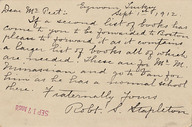 Erzroom, Turkey
Dear Mr Peet:- Sept 4, 1912
If a second list of books has
come to you to be forwarded to Boston
please to forward it as it contains
a large list of books all of which
are needed. These are for Mr. M.
Minassian and go to Van for
him as he has a normal school
there. Fraternally yours
Robt. S. Stapleton
SEP 17 1912